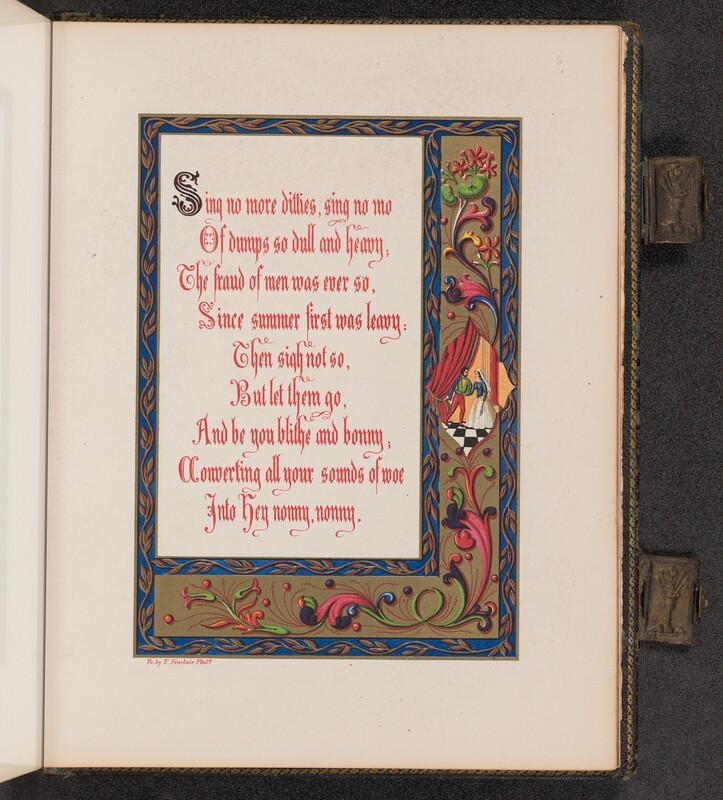 Sing no more ditties, sing no mo
Of dumps so dull and heavy;
The fraud of men was ever so,
Since summer first was leavy:
Then sigh not so,
But let them go,
And be you blithe and bonny;
Converting all your sounds of woe
Into Hey nonny, nonny.
Pr. by T. Sinclair Phila